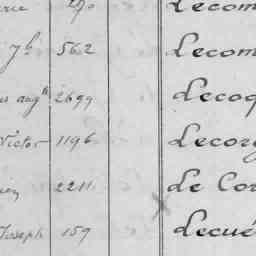 290 Lecom
7b 562 Lecom
aug 2699 Lecoq
Victor 1196 Lecor
2211 Le Cor
Joseph 159 Lecué